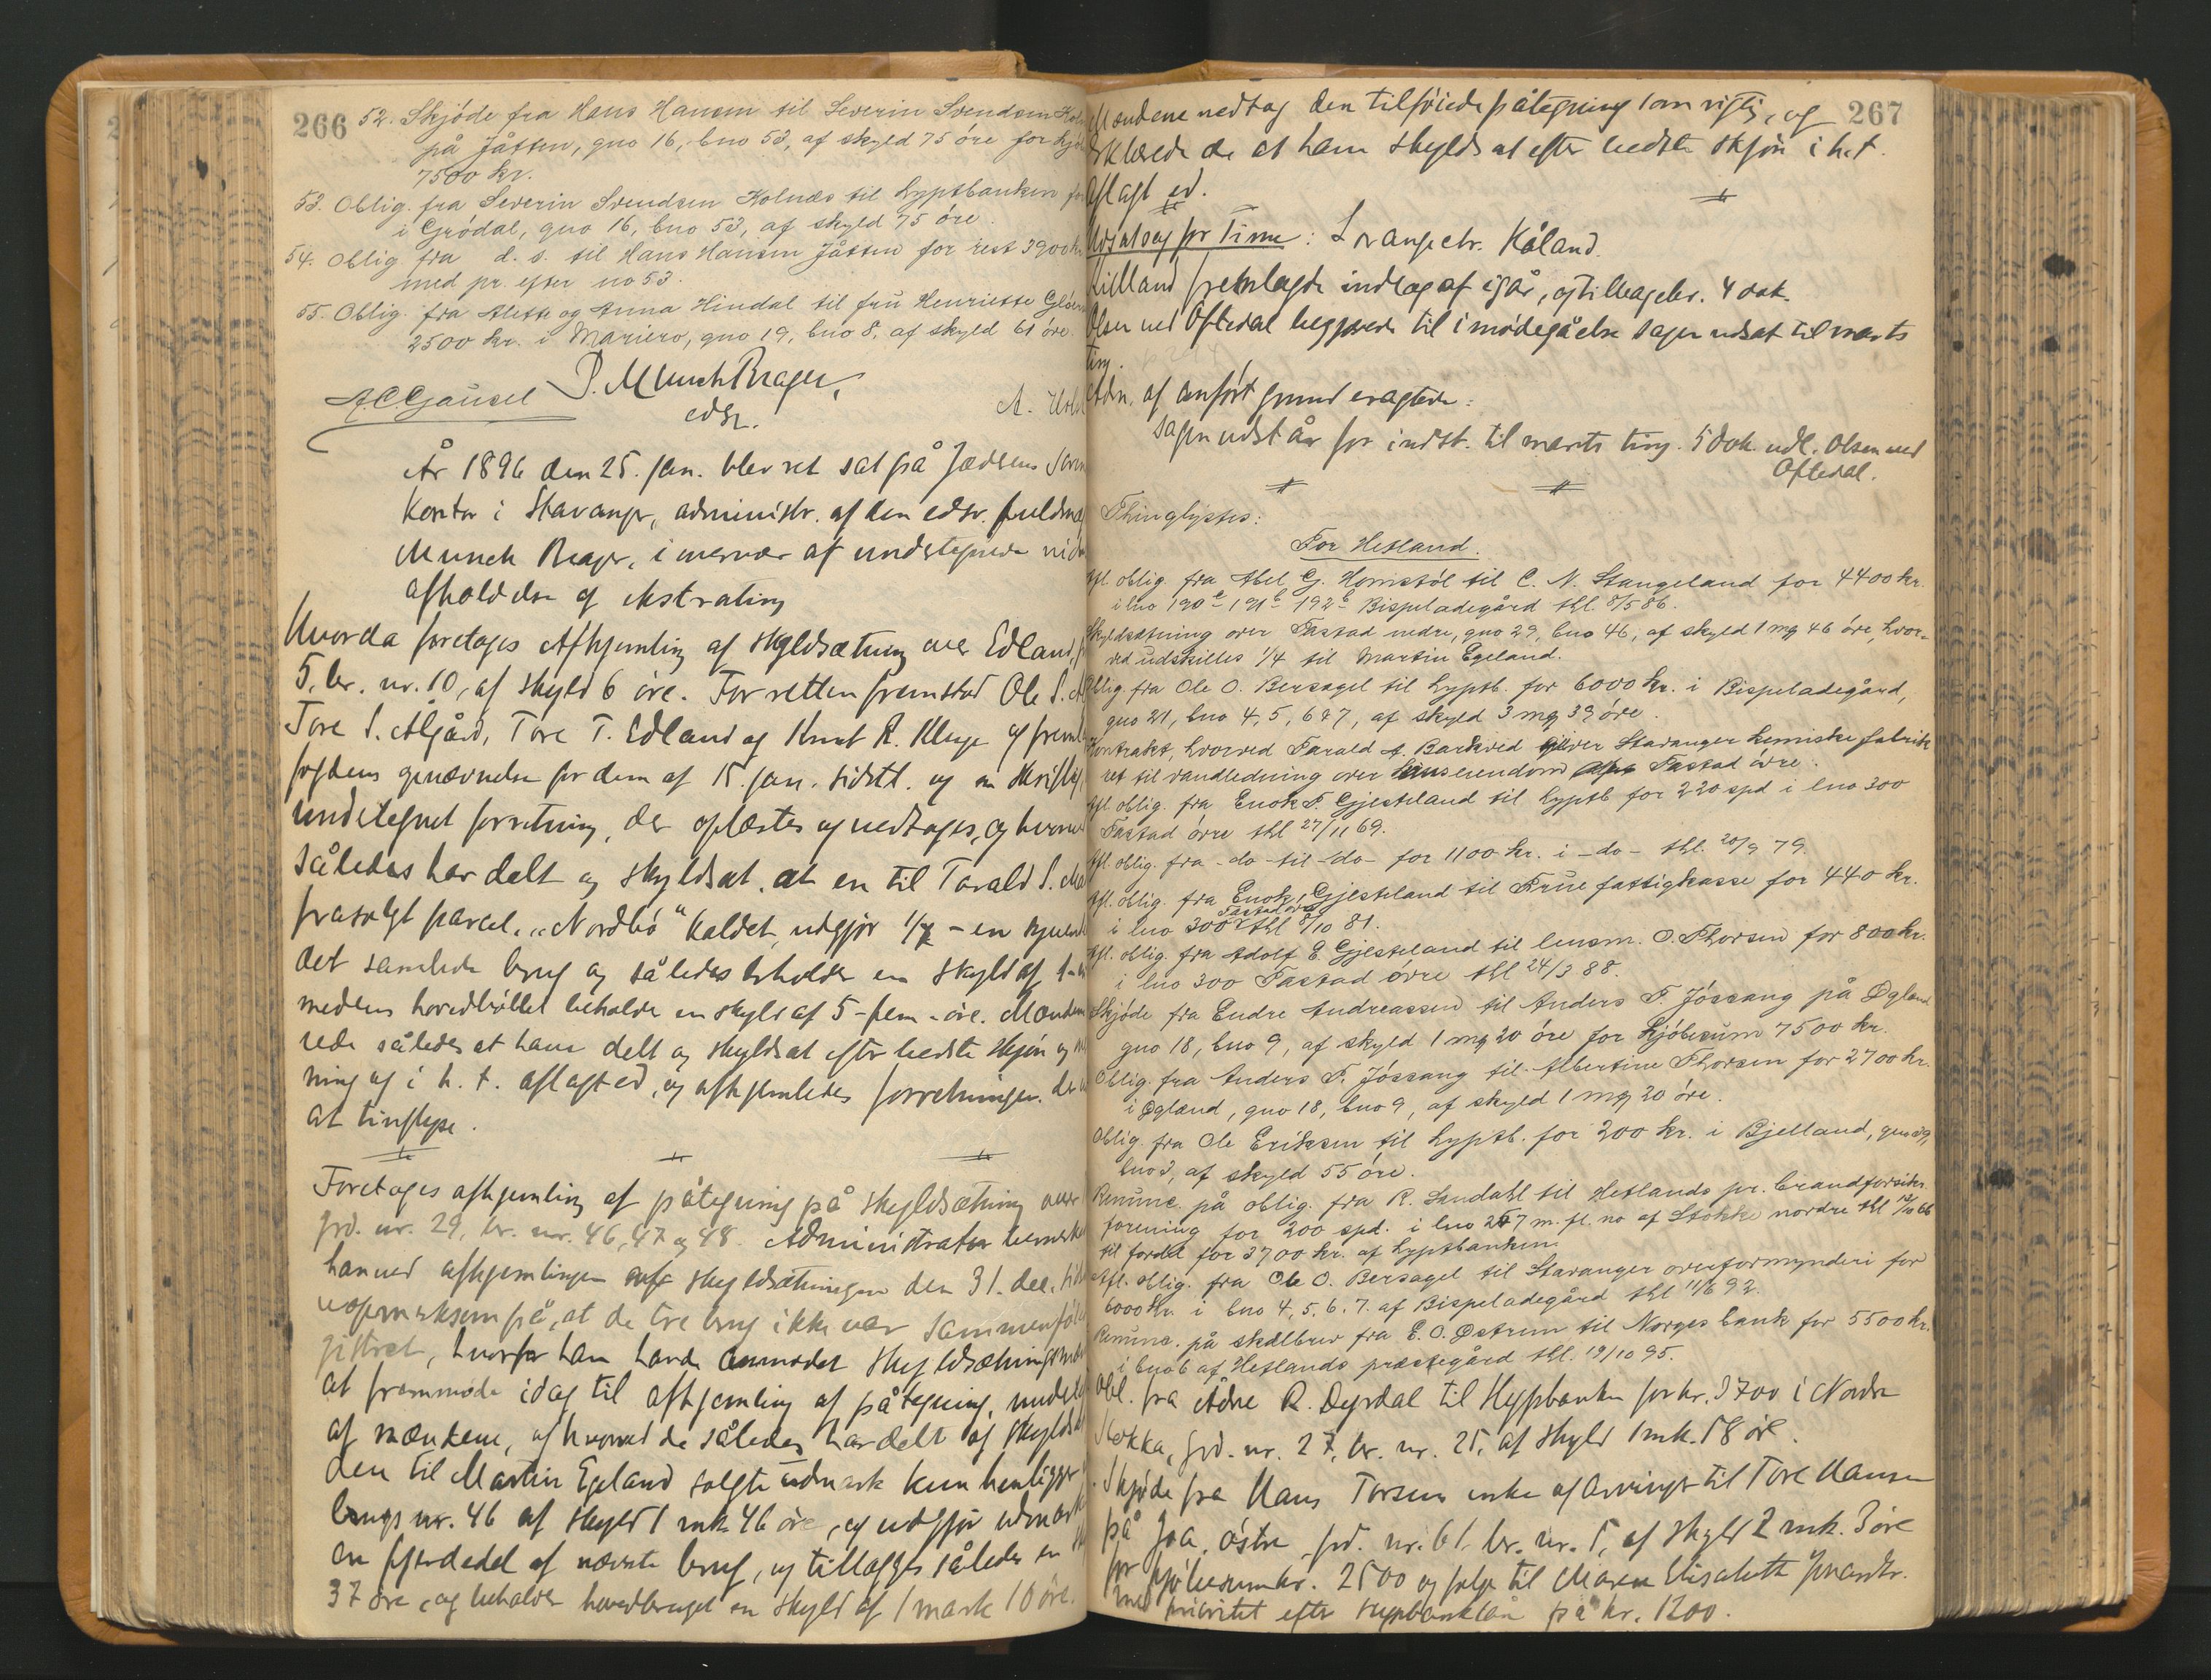 266
52. Skjöde fra Hans Hansen til Severin Svendsen
på Jåtten, gno 16, bno 53, af skyld 75 öre for
7500 kr.
53. Oblig. fra Severin Svendsen Holnæs til hyptbanken
i Gródal, gno 16, bno 53, af skyld 75 öre.
54. Oblig fra d. s. til Hans Hansen Jåtten for rest 3900
med pr. efter no 53.
55. Oblig. fra og Anna Hindal til fru Henriette
2500 kr. i Mariero, gno 19, bno 8, af skyld 61 öre.
P. Munch Rager,
A. C. Gausel
edsv.
År 1896 den 25. jan. blev ret sat på Jæderens
kontor i Stavanger, administr. af den edsv.
Munch Rager, i overvær af undertegnede
afholdelse af ekstrating
Hvorda foretages Afhjemling af skyldsætning over Edland,
5, br. nr. 10, af skyld 6 öre. For retten fremstod Ole S.
Tore S. Ålgård, Tore T. Edland og Knut R. og
fogdens opnævnelse for dem af 15. jan. sidstl. og en
undertegnet forretning, der oplæstes og vedtages, og
således har delt og skyldsat, at en til Torald S.
frasolgt parcel, "Nordbö" kaldet, udgjør 1/7 - en
det samlede brug og således beholder en skyld af
medens hovedbøllet beholder en skyld af 5 - fem - öre.
rede således at have delt og skyldsat efter bedste skjön og
ning og i h. t. aflagt ed, og afhjemledes forretningen.
at tinglyse.
Foretages afhjemling af påtegning på skyldsætning over
grd. nr. 29, br. nr. 46, 47 og 48. Administrator
han ved afhjemlingen af skyldsætningen den 31. dec.
opmerksom på, at de tre brug ikke var
hvorfor han havde anmodet
at fremmöde idag til afhjemling af påtegning,
af mændene, hvorved de således har delt og
den til Martin Egeland solgte udmark kun henligger
brugs nr. 46 af skyld 1 mk 46 öre, og udgjør
en fjerdedel af nævnte brug, og tillægges således en
37 öre, og beholder hovedbruget en skyld af 1 mark 10 öre.
267
Mændene vedtog den tilföiede påtegning som rigtig, og
erklærede de at have skyldsat efter bedste skjön i h. t.
aflagt ed.
Udsatsag for Time: Lorange ctr. Håland.
Kielland fremlagde indlæg af igår, og tilbagelev. 4 dok.
Olsen ved Oftedal begjærede til imödegåelse sagen udsat til marts
ting.
Adm. af anfört grund eragtede:
Sagen udstår for indst. til marts ting. 5 dok. udl. Olsen ved
Oftedal.
Thinglystes:
For Hetland.
Afl. oblig. fra Abel G. til C. N. Stangeland for 4400 kr.
i lno 190 191 192 Bispeladegård thl. 8/5 86.
Skyldsætning over Tastad nedre, gno 29, bno 46, af skyld 1 mq 46 öre, hvor-
ved udskilles 1/4 til Martin Egeland.
Oblig fra Ole O. Bersagel til hyptb. for 6000 kr. i Bispeladegård,
gno 21, bno 4, 5, 6 & 7, af skyld 3 mq 39 öre.
Kontrakt, hvorved Tarald A. Barkved giver Stavanger kemiske fabrik
ret til vandledning over Tastad övre.
Afl oblig. fra Enok T. Gjesteland til hyptb for 220 spd i lno 300
Tastad övre thl 27/11 69.
Afl. oblig. fra - do - til - do - for 1100 kr. i - do - thl. 20/9 79.
Afl. oblig. fra Enok Gjesteland til Frue fattigkasse for 440 kr.
i lno 300 Tastad övre thl 8/10 81.
Afl. oblig. fra Adolf E. Gjesteland til lensm. O. Thorsen for 800 kr.
i lno 300 Tastad övre thl 24/3 88.
Skjöde fra Endre Andreassen til Anders T. Jössang på Ögland
gno 18, bno 9, af skyld 1 mq 20 öre for kjöbesum 7500 kr.
Oblig. fra Anders T. Jössang til Albertine Thorsen for 2700 kr.
i Ögland, gno 18, bno 9, af skyld 1 mq 20 öre.
Oblig. fra Ole Eriksen til hyptb. for 200 kr. i Bjelland, gno 39,
bno 3, af skyld 55 öre.
Renunc. på oblig. fra R. Sandahl til Hetlands pr. brandforsikr.
forening for 200 spd. i lno 257 m. fl. no af Stokke nordre thl
til fordel for 3700 kr. af hyptbanken
Afl. oblig. fra Ole O. Bersagel til Stavanger overformynderi for
6000 kr. i bno 4, 5, 6, 7. af Bispeladegård thl 11/6 92.
Renunc. på skadbrev fra E. O. Östrem til Norges bank for 5500 kr.
i bno 6 af Hetlands præstegård thl. 19/10 95.
Obl. fra Ådne R. Dyrdal til Hypbanken for kr. 3700 i Nordre
Stokka, grd. nr. 27, br. nr. 25, af skyld 1 mk. 58 öre.
Skjöde fra Hans Torsens enke og arvinger til Tore Hansen
på Goa, östre, grd. nr. 61, br. nr. 5, af skyld 2 mk. 3 öre
for kjöbesum kr. 2500 og folge til Maren Elisabeth
med prioritet efter Hypbanklån på kr. 1200.